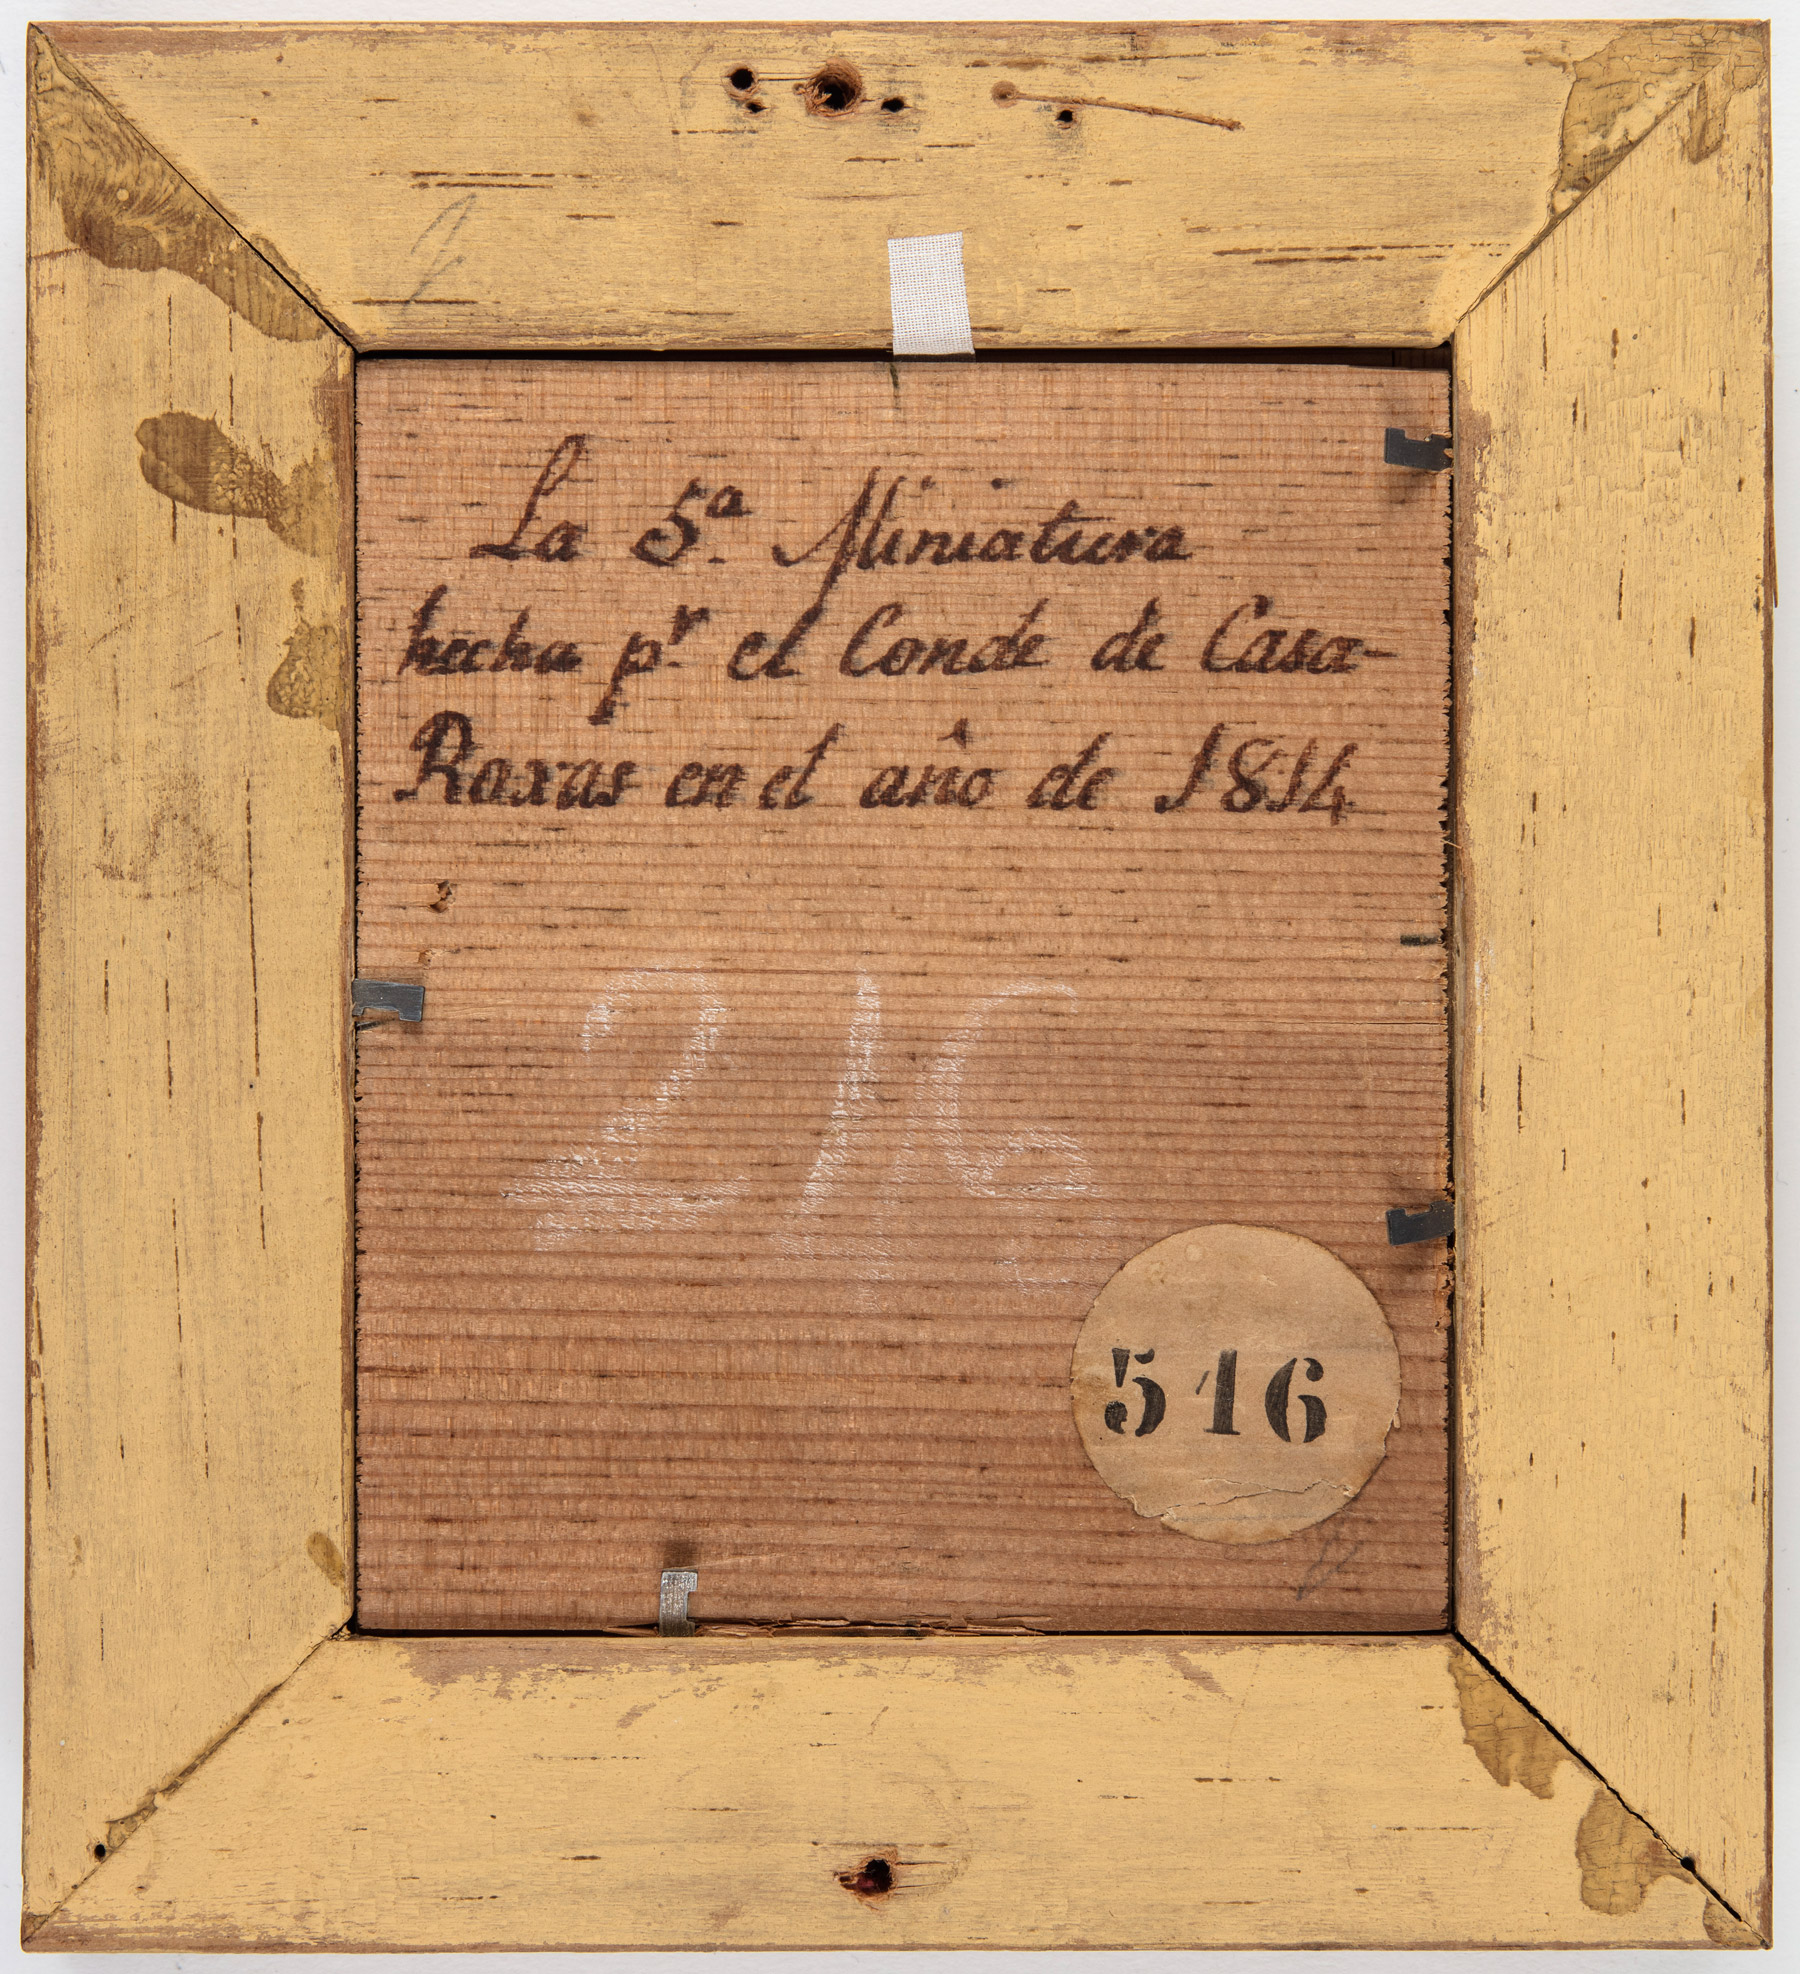 La 5ª. Miniatura
hecha pʳ. el Conde de Casa-
Roxas en el año de 1814
216
516